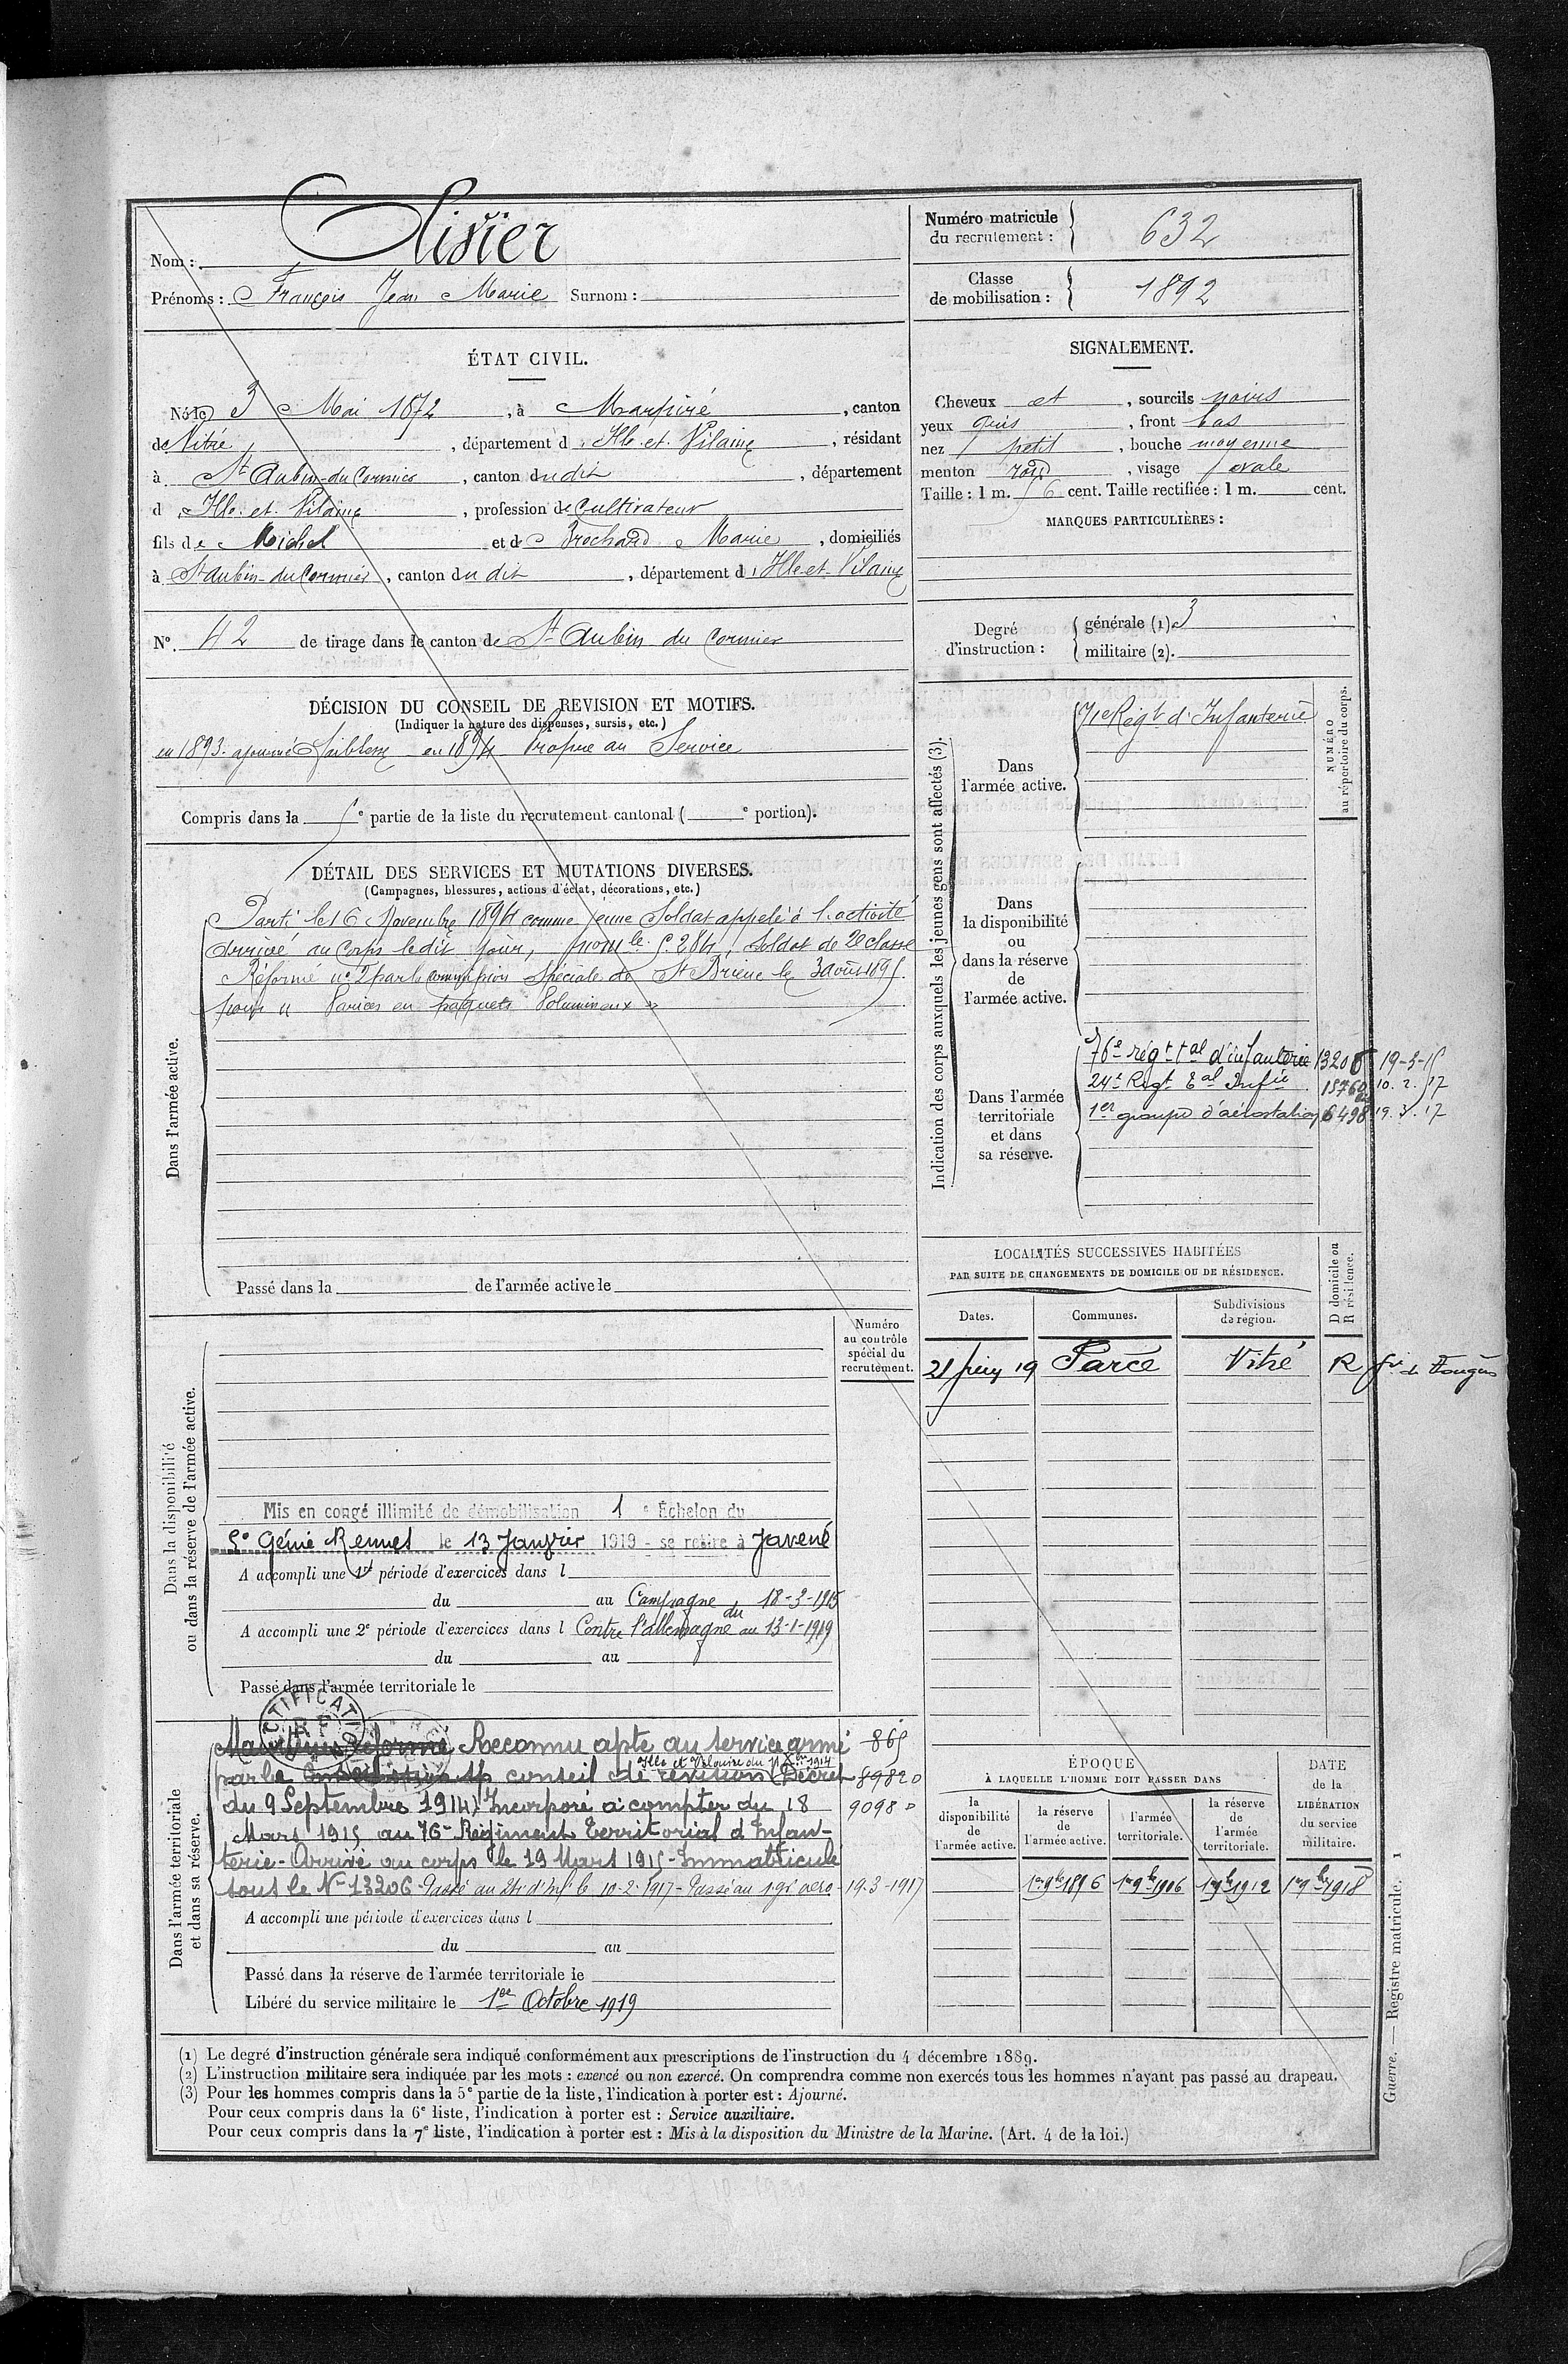 Nom : Olivier
Prénoms : François Jean Marie Surnom :
Numéro matricule du recrutement : 632
Classe de mobilisation : 1892
ÉTAT CIVIL.
Né le 3 Mai 1872, à Marpiré, canton
de Vitré, département d'Ille-et-Vilaine, résidant
à St Aubin-du-Cormier, canton dudit, département
d'Ille-et-Vilaine, profession de Cultivateur
fils de Michel et de Brochard Marie, domiciliés
à St Aubin-du-Cormier, canton dudit, département d'Ille-et-Vilaine
N° 42 de tirage dans le canton de St Aubin du Cormier
SIGNALEMENT.
Cheveux et, sourcils noirs
yeux gris, front bas
nez petit, bouche moyenne
menton rond, visage ovale
Taille : 1 m. 56 cent. Taille rectifiée : 1 m. cent.
MARQUES PARTICULIÈRES :
Degré d'instruction :
générale (1). 3
militaire (2).
DÉCISION DU CONSEIL DE REVISION ET MOTIFS.
(Indiquer la nature des dispenses, sursis, etc.)
en 1893 ajourné faiblesse en 1894 Propre au Service
Compris dans la e partie de la liste du recrutement cantonal ( e portion).
DÉTAIL DES SERVICES ET MUTATIONS DIVERSES.
(Campagnes, blessures, actions d'éclat, décorations, etc.)
Dans l'armée active.
Parti le 16 Novembre 1894 comme jeune Soldat appelé à l'activité
Arrivé au Corps ledit jour, 5284, soldat de 2e classe
Réformé n° 2 par la commission spéciale de St Brieuc le 3 août 1895
pour " Varices en paquets Volumineux "
Passé dans la de l'armée active le
Indication des corps auxquels les jeunes gens sont affectés (3).
NUMÉRO au répertoire du corps.
Dans l'armée active.
71e Régt d'Infanterie
Dans la disponibilité ou dans la réserve de l'armée active.
Dans l'armée territoriale et dans sa réserve.
76e régt tal d'infanterie 13206 19-3-15
24e Regt tal Infie 18760 10.2.17
1er groupe d'aérostation 6498 19.3.17
LOCALITÉS SUCCESSIVES HABITÉES
PAR SUITE DE CHANGEMENTS DE DOMICILE OU DE RÉSIDENCE.
Dates. Communes. Subdivisions de région. D domicile ou R résidence.
21 19 Parcé Vitré R de Fougères
Dans la disponibilité ou dans la réserve de l'armée active.
Numéro au contrôle spécial du recrutement.
Mis en congé illimité de démobilisation 1 e Échelon du
5e Génie Rennes le 13 Janvier 1919 - se retire à Javené
A accompli une 1re période d'exercices dans l
du au Campagne du 18-3-1915
A accompli une 2e période d'exercices dans l Contre l'allemagne au 13-1-1919
du au
Passé dans l'armée territoriale le
Dans l'armée territoriale et dans sa réserve.
Reconnu apte au service armé 865
Ille et Vilaine du 11 Xbre 1914
par le conseil de révision (Décret 89820
du 9 Septembre 1914) Incorporé à compter du 18 9098
Mars 1915 au 76e Régiment Territorial d'Infan-
terie - Arrivé au corps le 19 Mars 1915 - Immatriculé
sous le N° 13206 - Passé au 24e d'Infie le 10-2-1917 - Passé au 1 gr aéro - 19-3-1917
A accompli une période d'exercices dans l
du au
Passé dans la réserve de l'armée territoriale le
Libéré du service militaire le 1er Octobre 1919
ÉPOQUE
À LAQUELLE L'HOMME DOIT PASSER DANS
la disponibilité de l'armée active.
la réserve de l'armée active.
l'armée territoriale.
la réserve de l'armée territoriale.
DATE de la LIBÉRATION du service militaire.
1er 9bre 1896 1er 9bre 1906 1er 9bre 1912 1er 9bre 1918
(1) Le degré d'instruction générale sera indiqué conformément aux prescriptions de l'instruction du 4 décembre 1889.
(2) L'instruction militaire sera indiquée par les mots : exercé ou non exercé. On comprendra comme non exercés tous les hommes n'ayant pas passé au drapeau.
(3) Pour les hommes compris dans la 5e partie de la liste, l'indication à porter est : Ajourné.
Pour ceux compris dans la 6e liste, l'indication à porter est : Service auxiliaire.
Pour ceux compris dans la 7e liste, l'indication à porter est : Mis à la disposition du Ministre de la Marine. (Art. 4 de la loi.)
Guerre. — Registre matricule. 1